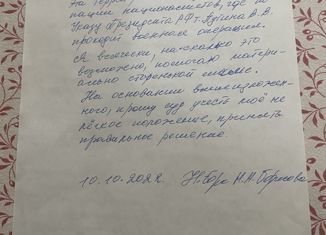 нацик националистов, где по
Указу Президента РФ Путина В.В.
проходит военная операция.
Я всячески, насколько это
возможно, помогаю матери-
ально стороне
На основании вышеизложен-
ного, прошу суд учесть моё не
лёгкое положение, принять
правильное решение.
10.10.2022. Н.Н. Борисова